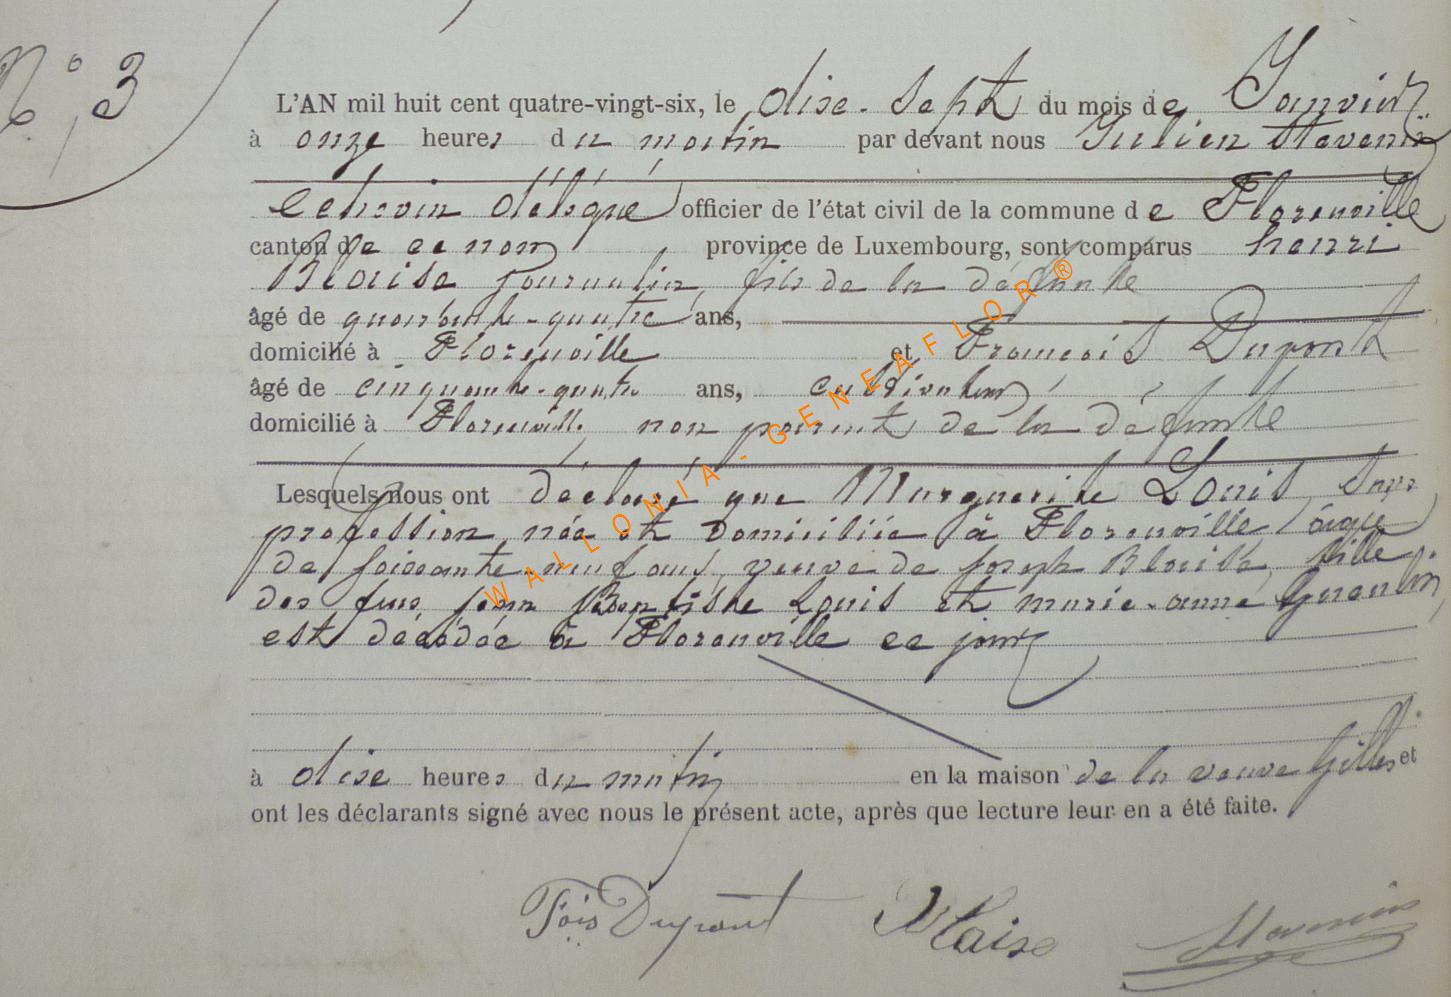 N° 3
L'AN mil huit cent quatre-vingt-six, le dise-sept du mois de Janvier
à onze heures du matin par devant nous Julien
echevin délégué officier de l'état civil de la commune de Florenville
canton de ce nom province de Luxembourg, sont comparus henri
Blaise journalier, fils de la défunte
âgé de quarante-quatre ans,
domicilié à Florenville et François Dupont
âgé de cinquante-quatre ans, cultivateur
domicilié à Florenville, non parent de la défunte
Lesquels nous ont déclaré que Marguerite Louis, sans
profession, née et domiciliée à Florenville, âgée
de soissante-neuf ans, veuve de joseph Blaise, fille
des feus jean Baptiste Louis et marie-anne
est décédée à Florenville ce jour
à dise heures du matin en la maison de la veuve Gilles et
ont les déclarants signé avec nous le présent acte, après que lecture leur en a été faite.
Fois Dupont Blaise
WALLONIA-GENEAFLOR®